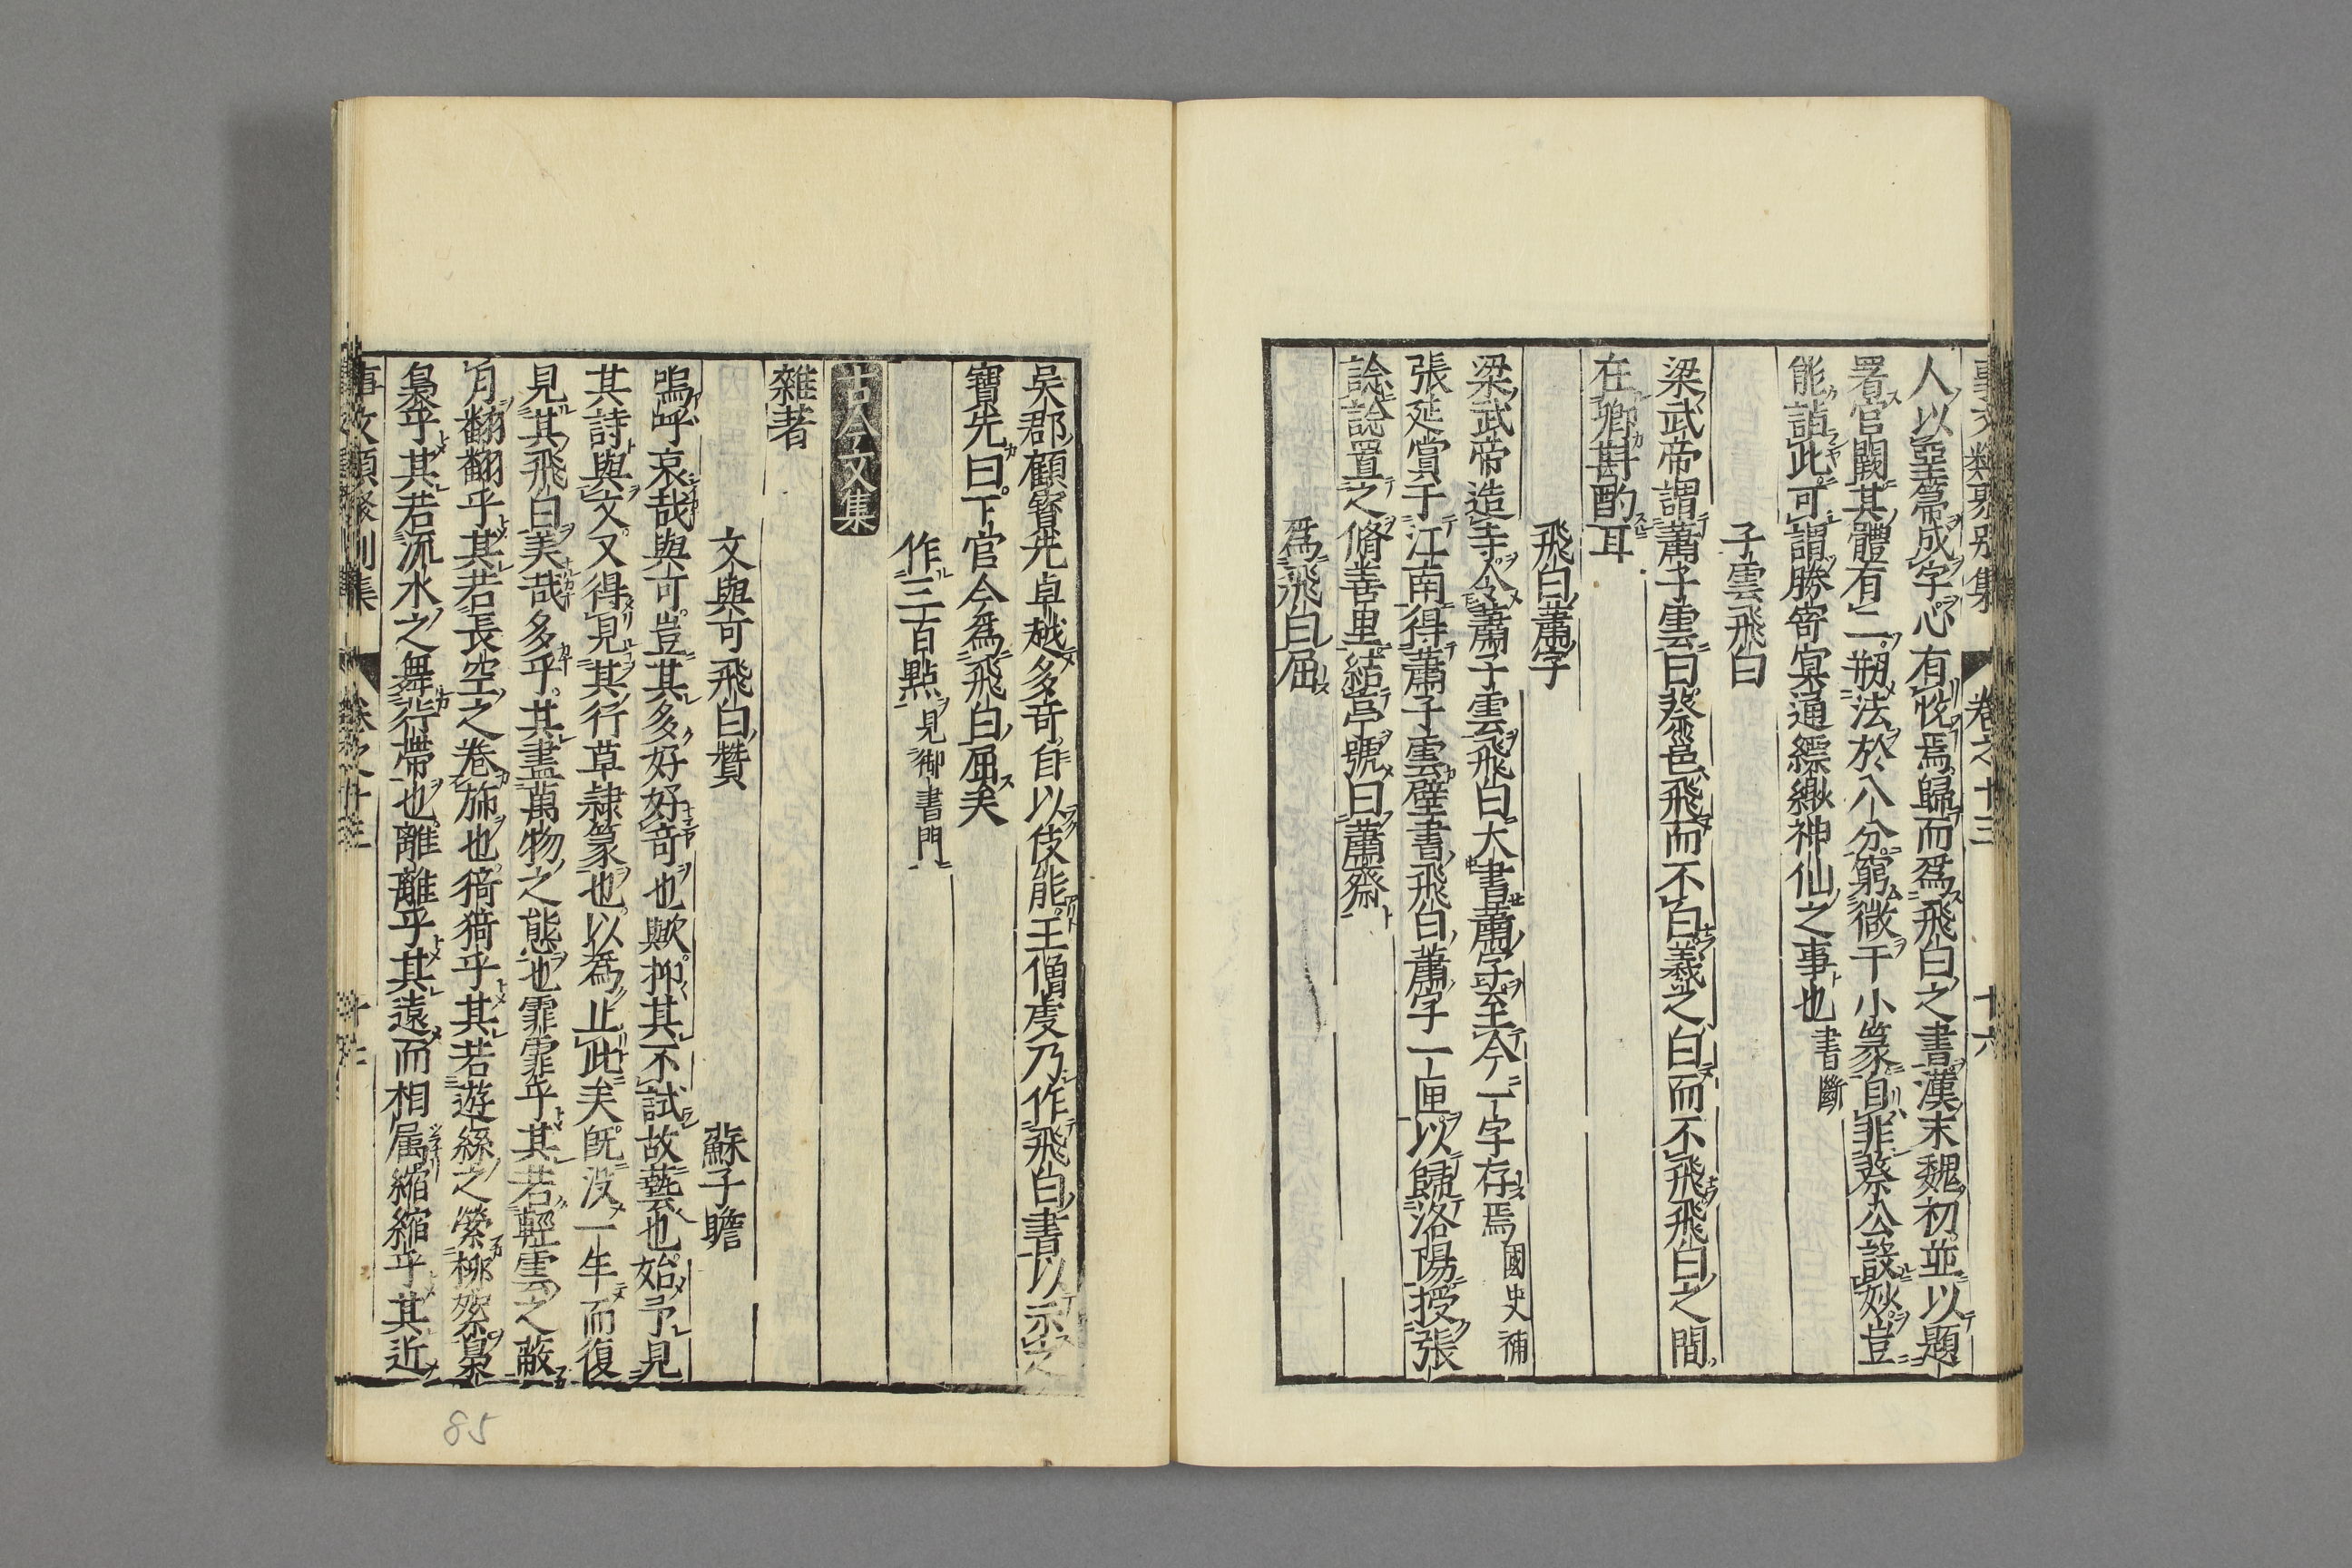 事文類聚別集 卷之十三 十六
人以堊箒成字心有悅焉歸而爲飛白之書漢末魏初並以題
署宮闕其體有二剏法於八分窮微于小篆自非蔡公設妙豈
能詣此可謂勝寄冥通縹緲神仙之事也書斷
子雲飛白
梁武帝謂蕭子雲曰蔡邕飛而不白羲之白而不飛飛白之間
在卿斟酌耳
飛白蕭字
梁武帝造寺令蕭子雲飛白大書蕭字至今一字存焉國史補
張延賞于江南得蕭子雲壁書飛白蕭字一匣以歸洛陽授張
諗諗置之脩善里結亭號曰蕭齋
爲飛白屈
吴郡顧寳先卓越多奇自以伎能王僧虔乃作飛白書以示之
寶先曰下官今爲飛白屈矣
作三百點見御書門
古今文集
雜著
文與可飛白贊 蘇子瞻
嗚呼哀哉與可豈其多好好奇也歟抑其不試故藝也始予見
其詩與文又得見其行草隷篆也以爲止此矣旣没一年而復
見其飛白美哉多乎其盡萬物之態也霏霏乎其若輕雲之蔽
月翻翻乎其若長空之卷旆也猗猗乎其若遊絲之縈柳絮裊
裊乎其若流水之舞荇帶也離離乎其遠而相属縮縮乎其近
事文類聚別集 卷之十三